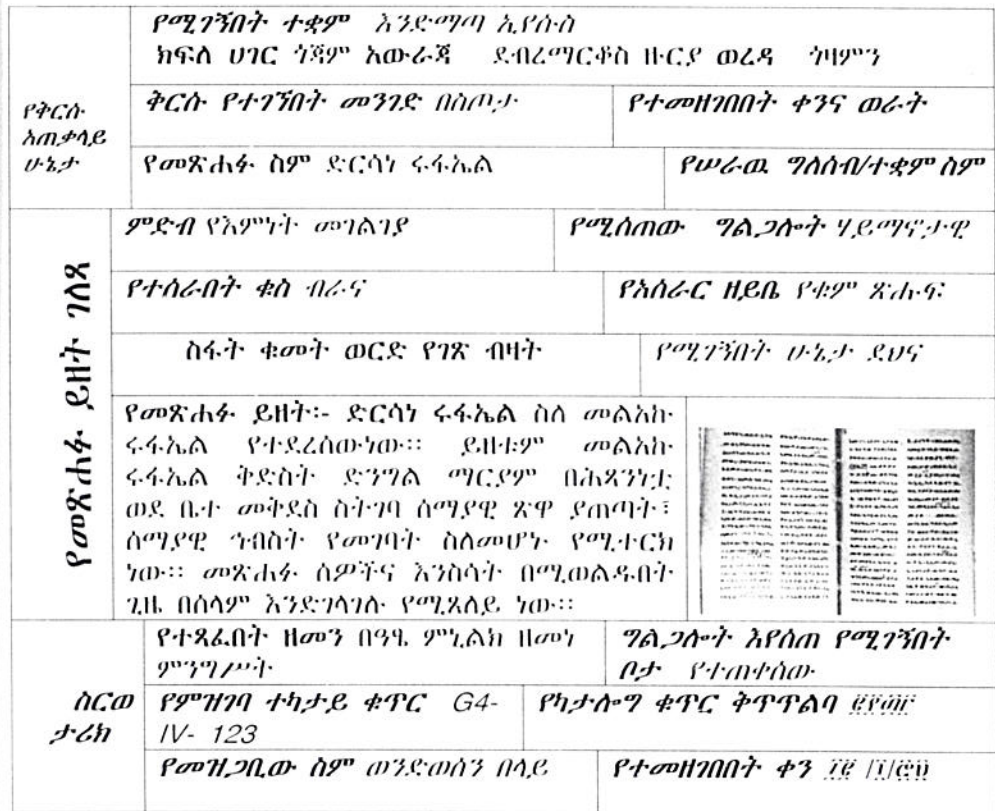 የሚገኝበት ተቋም እንድማጣ ኢየሱስ
ክፍለ ሀገር ጎጃም አውራጃ ደብረማርቆስ ዙርያ ወረዳ ጎዛምን
የቅርሱ
አጠቃላይ
ሁኔታ
ቅርሱ የተገኘበት መንገድ በስጦታ
የተመዘገበበት ቀንና ወራት
የመጽሐፉ ስም ድርሳነ ሩፋኤል
የሠራዉ ግለሰብ/ተቋም ስም
የመጽሐፉ ይዘት ገለጻ
ምድብ የእምነት መገልገያ
የሚሰጠው ግልጋሎት ሃይማኖታዊ
የተሰራበት ቁስ ብራና
የአሰራር ዘይቤ የቁም ጽሑፍ
ስፋት ቁመት ወርድ የገጽ ብዛት
የሚገኝበት ሁኔታ ደህና
የመጽሐፉ ይዘት፡- ድርሳነ ሩፋኤል ስለ መልአኩ
ሩፋኤል የተደረሰውነው፡፡ ይዘቱም መልአኩ
ሩፋኤል ቅድስት ድንግል ማርያም በሕጻንነቷ
ወደ ቤተ መቅደስ ስትገባ ሰማያዊ ጽዋ ያጠጣት፤
ሰማያዊ ኅብስት የመገባት ስለመሆኑ የሚተርክ
ነው፡፡ መጽሐፉ ሰዎችና እንስሳት በሚወልዱበት
ጊዜ በሰላም እንድገላገሉ የሚጸለይ ነው፡፡
ስርወ
ታሪክ
የተጻፈበት ዘመን በዓፄ ምኒልክ ዘመነ
ምንግሥት
ግልጋሎት እየሰጠ የሚገኝበት
ቦታ የተጠቀሰው
የምዝገባ ተካታይ ቁጥር G4-
IV- 123
የካታሎግ ቁጥር ቅጥጥልባ
የመዝጋቢው ስም ወንድወሰን በላይ
የተመዘገበበት ቀን